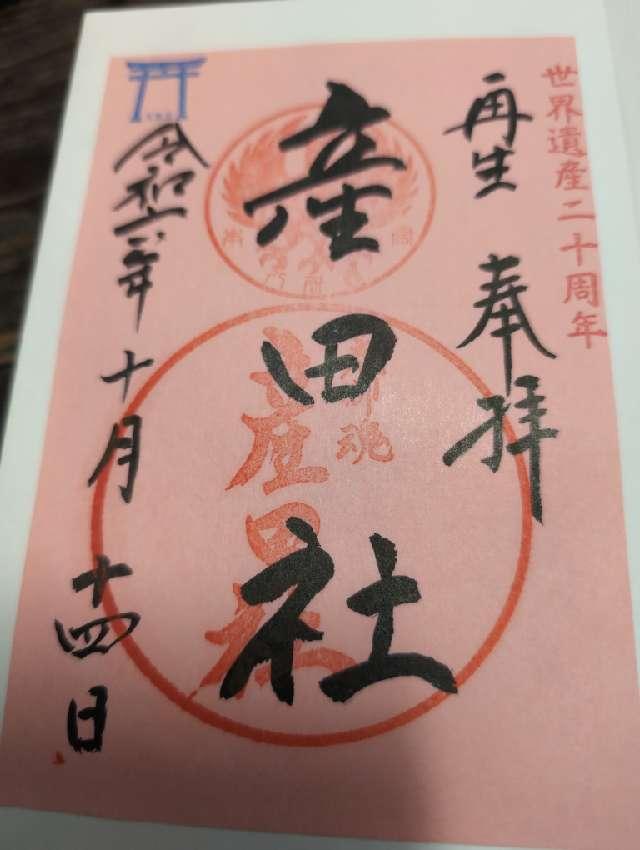 世界遺産二十周年
再生 奉拝
産田社
令和六年十月十四日
産田社